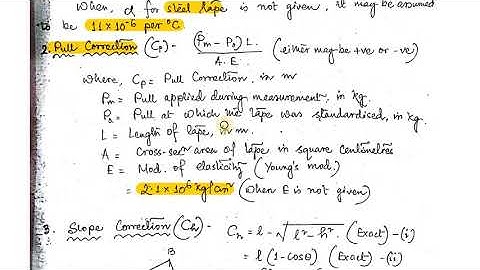 When, α for steel tape is not given, it may be assumed
to be 11×10⁻⁶ per °C
2. Pull Correction (Cp) - (Pm - Ps) L / A.E. (either may be +ve or -ve)
where, Cp = Pull Correction, in m
Pm = Pull applied during measurement, in kg.
Ps = Pull at which the tape was standardised, in kg.
L = Length of tape, in m.
A = Cross-secn area of tape in square centimetres
E = Mod. of elasticity (Young's mod.)
= 2.1×10⁶ kg/cm² (when E is not given)
3. Slope Correction (Ch) Ch = l - √l²-h². (Exact) - (i)
= l (1-Cosθ) (Exact) - (ii)
B